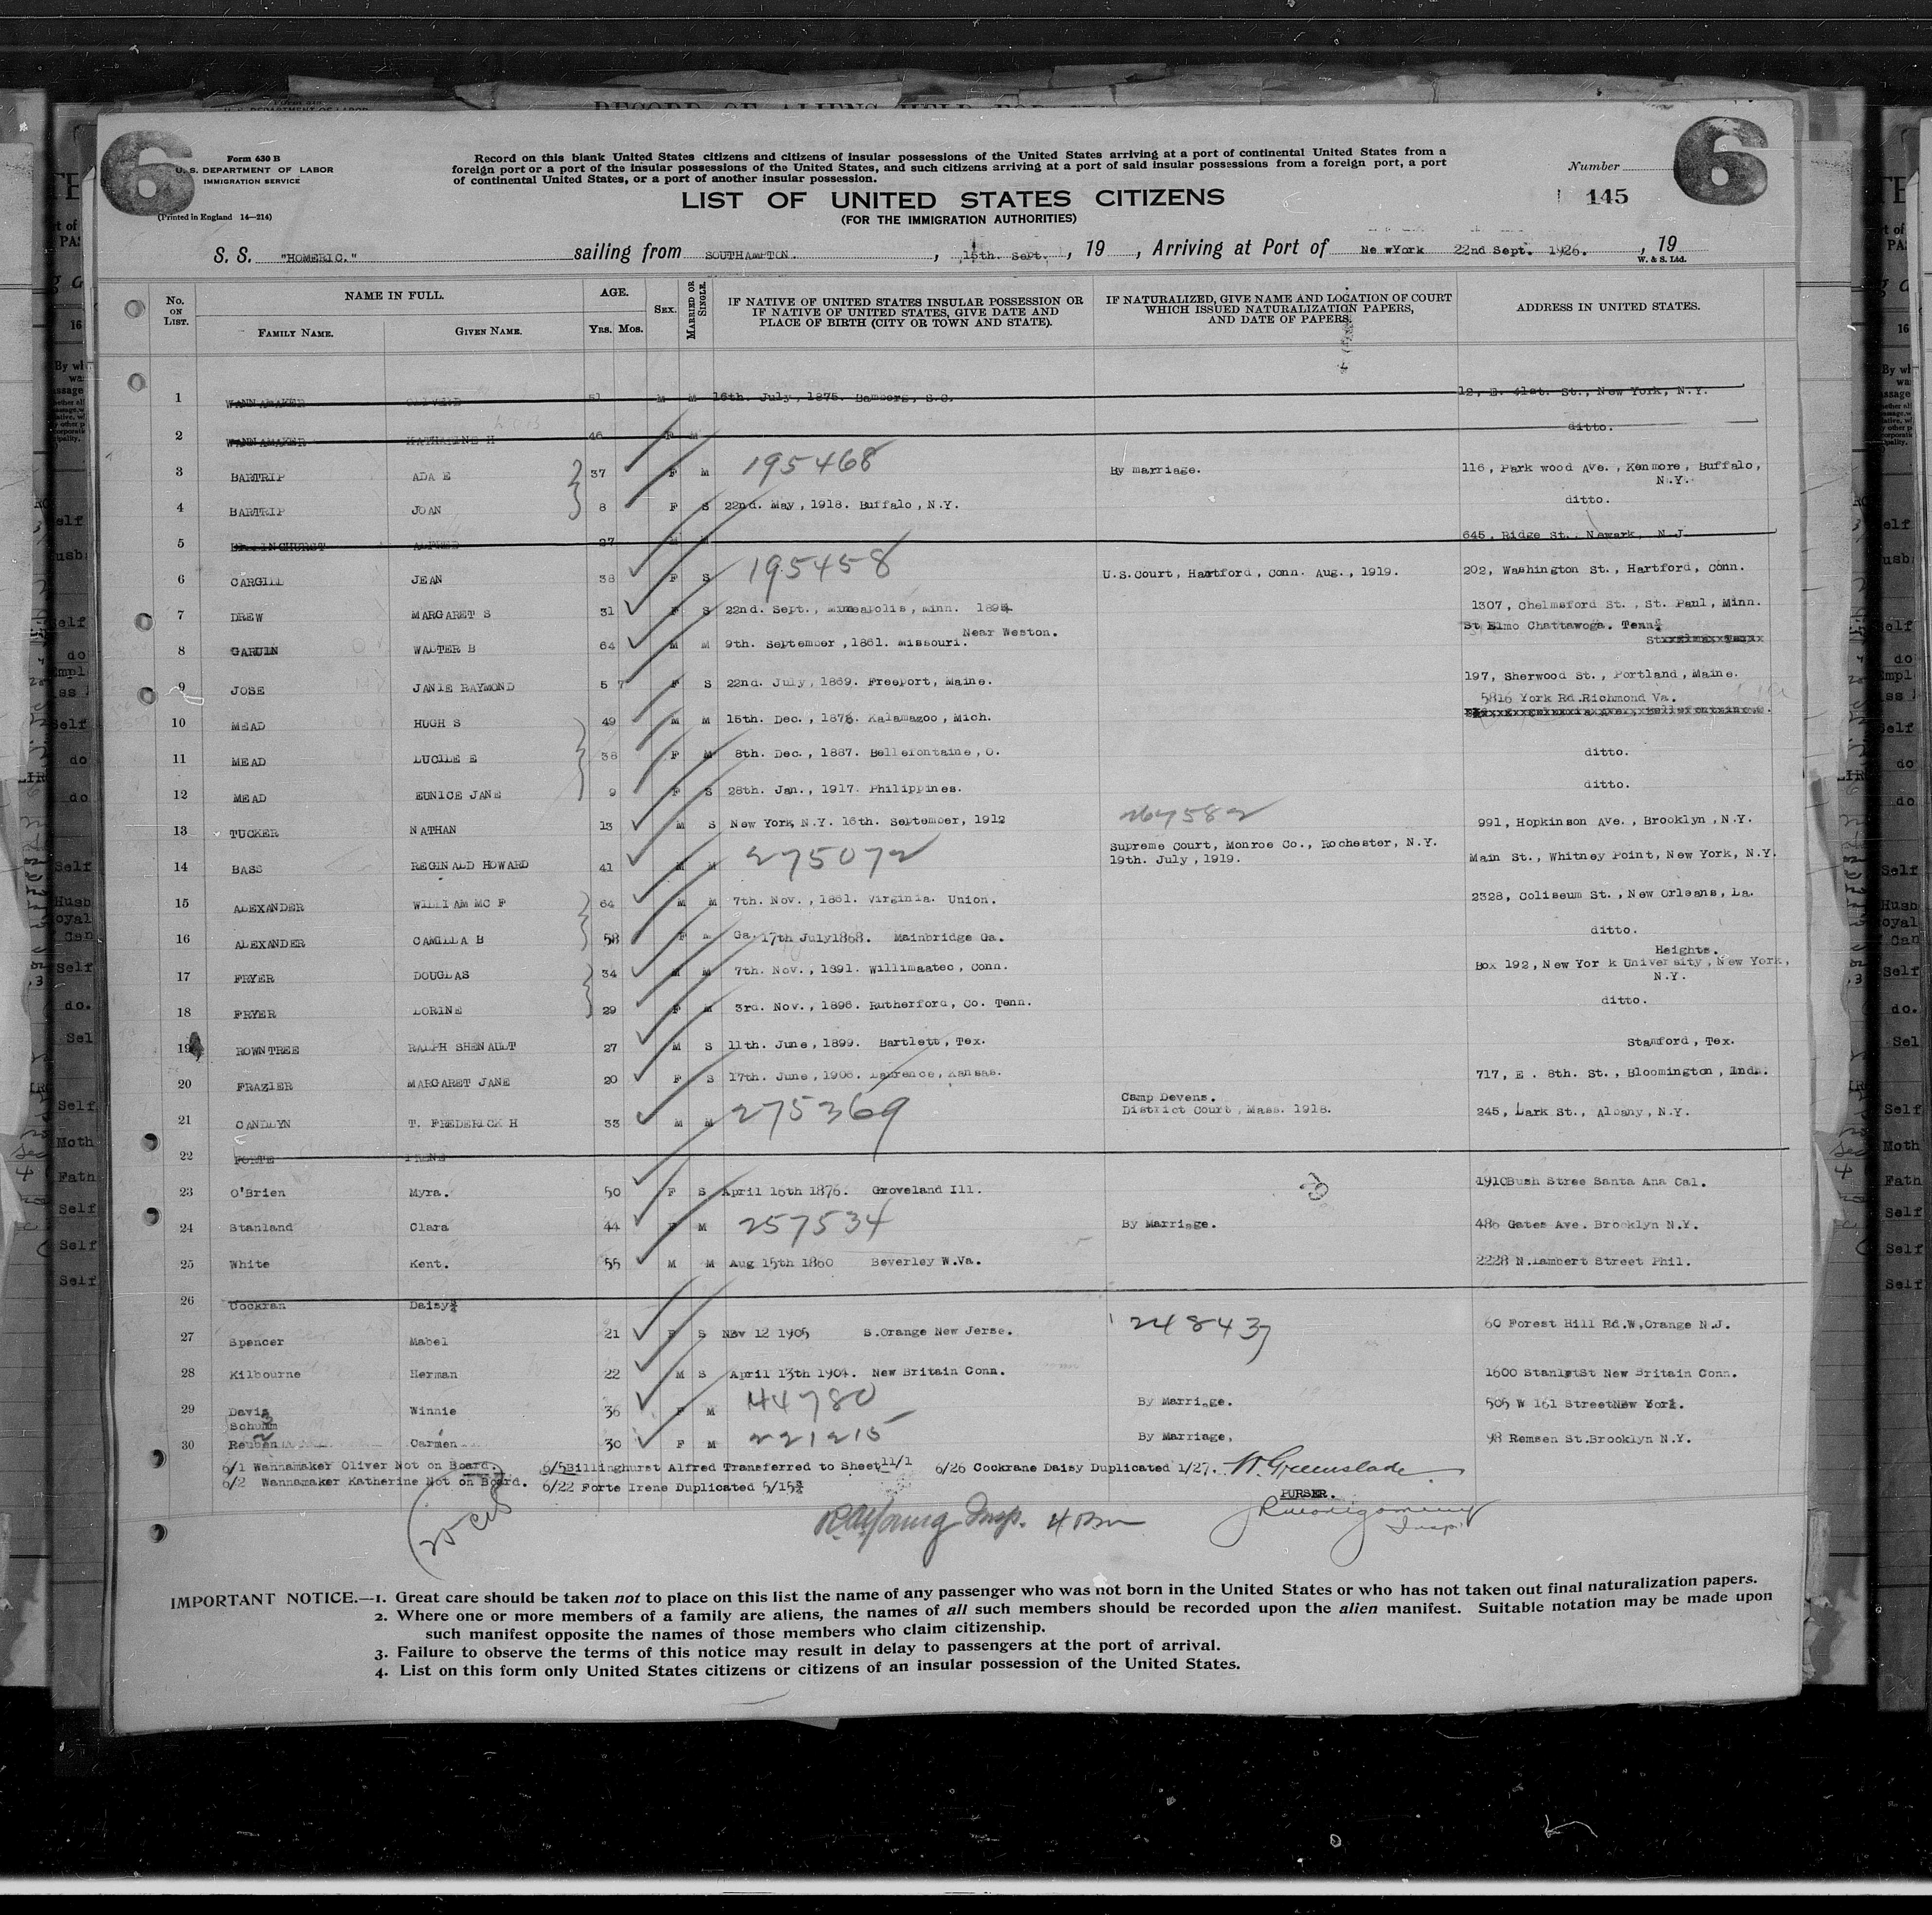 6
6
Form 630 B
U. S. DEPARTMENT OF LABOR
IMMIGRATION SERVICE
(Printed in England 14—214)
Record on this blank United States citizens and citizens of insular possessions of the United States arriving at a port of continental United States from a
foreign port or a port of the insular possessions of the United States, and such citizens arriving at a port of said insular possessions from a foreign port, a port
of continental United States, or a port of another insular possession.
Number
145
LIST OF UNITED STATES CITIZENS
(FOR THE IMMIGRATION AUTHORITIES)
S. S. "HOMERIC." sailing from SOUTHAMPTON. , 15th. Sept. , 19 , Arriving at Port of New York 22nd Sept. 1926. , 19
W. & S. Ltd.
No. ON LIST. NAME IN FULL. FAMILY NAME. GIVEN NAME. AGE. Yrs. Mos. SEX. MARRIED OR SINGLE. IF NATIVE OF UNITED STATES INSULAR POSSESSION OR IF NATIVE OF UNITED STATES, GIVE DATE AND PLACE OF BIRTH (CITY OR TOWN AND STATE). IF NATURALIZED, GIVE NAME AND LOCATION OF COURT WHICH ISSUED NATURALIZATION PAPERS, AND DATE OF PAPERS. ADDRESS IN UNITED STATES.
1 WANNAMAKER 51 M M 16th. July, 1875. Bamberg, S.C. 12, E. 41st. St., New York, N.Y.
2 WANNAMAKER KATHARINE H 46 F M ditto.
3 BARTRIP ADA E 37 F M 195468 By marriage. 116, Park wood Ave., Kenmore, Buffalo, N.Y.
4 BARTRIP JOAN 8 F S 22nd. May, 1918. Buffalo, N.Y. ditto.
5 BILLINGHURST ALFRED 27 M 645, Ridge St., Newark, N.J
6 CARGILL JEAN 38 F S 195458 U.S.Court, Hartford, Conn. Aug., 1919. 202, Washington St., Hartford, Conn.
7 DREW MARGARET S 31 F S 22nd. Sept., Minneapolis, Minn. 1307, Chelmsford St., St. Paul, Minn.
8 GARUIN WALTER B 64 M M 9th. September, 1861. Missouri. Near Weston. St Elmo Chattawoga. Tenn
9 JOSE JANIE RAYMOND 57 F S 22nd. July, 1869. Freeport, Maine. 197, Sherwood St., Portland, Maine.
10 MEAD HUGH S 49 M M 15th. Dec., 1876. Kalamagoo, Mich. 5816 York Rd.Richmond Va.
11 MEAD LUCILE E 38 F M 8th. Dec., 1887. Bellefontaine, O. ditto.
12 MEAD EUNICE JANE 9 F S 28th. Jan., 1917. Philippines. ditto.
13 TUCKER NATHAN 13 M S New York, N.Y. 16th. September, 1912 267582 991, Hopkinson Ave., Brooklyn, N.Y.
14 BASS REGINALD HOWARD 41 M M 275072 Supreme Court, Monroe Co., Rochester, N.Y. 19th. July, 1919. Main St., Whitney Point, New York, N.Y.
15 ALEXANDER WILLIAM MC F 64 M M 7th. Nov., 1861. Virginia. Union. 2328, Coliseum St., New Orleans, La.
16 ALEXANDER CAMILLA B 58 F M Ga. 17th July1868. Mainbridge Ga. ditto.
17 FRYER DOUGLAS 34 M M 7th. Nov., 1891. Willimaatec, Conn. Box 192, New York University, Heights. New York, N.Y.
18 FRYER LORINE 29 F M 3rd. Nov., 1896. Rutherford, Co. Tenn. ditto.
19 ROWNTREE RALPH SHENAULT 27 M S 11th. June, 1899. Bartlett, Tex. Stamford, Tex.
20 FRAZIER MARGARET JANE 20 F S 17th. June, 1906. Lawrence, Kansas. 717, E. 8th. St., Bloomington, Ind.
21 CANDLYN T. FREDERICK H 33 M M 275369 Camp Devens. District Court, Mass. 1918. 245, Lark St., Albany, N.Y.
22 FORTE IRENE
23 O'Brien Myra. 50 F S April 16th 1876. Groveland Ill. 1910Bush Stree Santa Ana Cal.
24 Stanland Clara 44 F M 257534 By Marriage. 486 Gates Ave. Brooklyn N.Y.
25 White Kent. 55 M M Aug 15th 1860 Beverley W.Va. 2228 N.Lambert Street Phil.
26 Cockran Daisy
27 Spencer Mabel 21 F S Nov 12 1905 S.Orange New Jerse. 248437 60 Forest Hill Rd.W.Orange N.J.
28 Kilbourne Herman 22 M S April 13th 1904. New Britain Conn. 1600 StanletSt New Britain Conn.
29 Davis Winnie 36 F M 44780 By Marriage. 505 W 161 StreetNew York.
Schumm
30 Reuben Carmen 30 F M 221215 By Marriage, 98 Remsen St.Brooklyn N.Y.
6/1 Wannamaker Oliver Not on Board. 6/5Billinghurst Alfred Transferred to Sheet11/1 6/26 Cockrane Daisy Duplicated 1/27. W. Greenslade
6/2 Wannamaker Katherine Not on Board. 6/22 Forte Irene Duplicated 5/15
PURSER.
R. A. Young Insp. RMontgomery
Insp
IMPORTANT NOTICE.—1. Great care should be taken not to place on this list the name of any passenger who was not born in the United States or who has not taken out final naturalization papers.
2. Where one or more members of a family are aliens, the names of all such members should be recorded upon the alien manifest. Suitable notation may be made upon
such manifest opposite the names of those members who claim citizenship.
3. Failure to observe the terms of this notice may result in delay to passengers at the port of arrival.
4. List on this form only United States citizens or citizens of an insular possession of the United States.